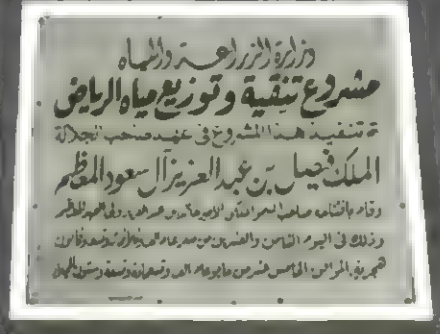 وزارة الزراعة والمياه
مشروع تنقية وتوزيع مياه الرياض
تم تنفيذ هذا المشروع في عهد صاحب الجلالة
الملك فيصل بن عبد العزيز آل سعود المعظم
وقام بافتتاحه صاحب السمو الملكي الأمير خالد بن عبد العزيز ولي العهد المعظم
وذلك في اليوم الثامن والعشرين من صفر عام ألف وثلاثمائة وتسعة وثمانين
هجرية الموافق الخامس عشر من مايو عام ألف وتسعمائة وتسعة وستون